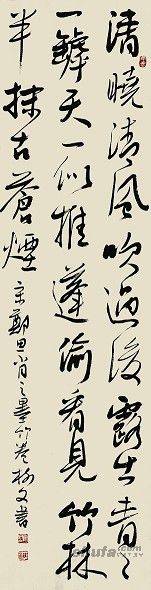 清曉清風吹過後露出青々
一罅天一似推蓬偷看見竹林
半抹古蒼煙 宋鄭思肖之墨竹卷 文書